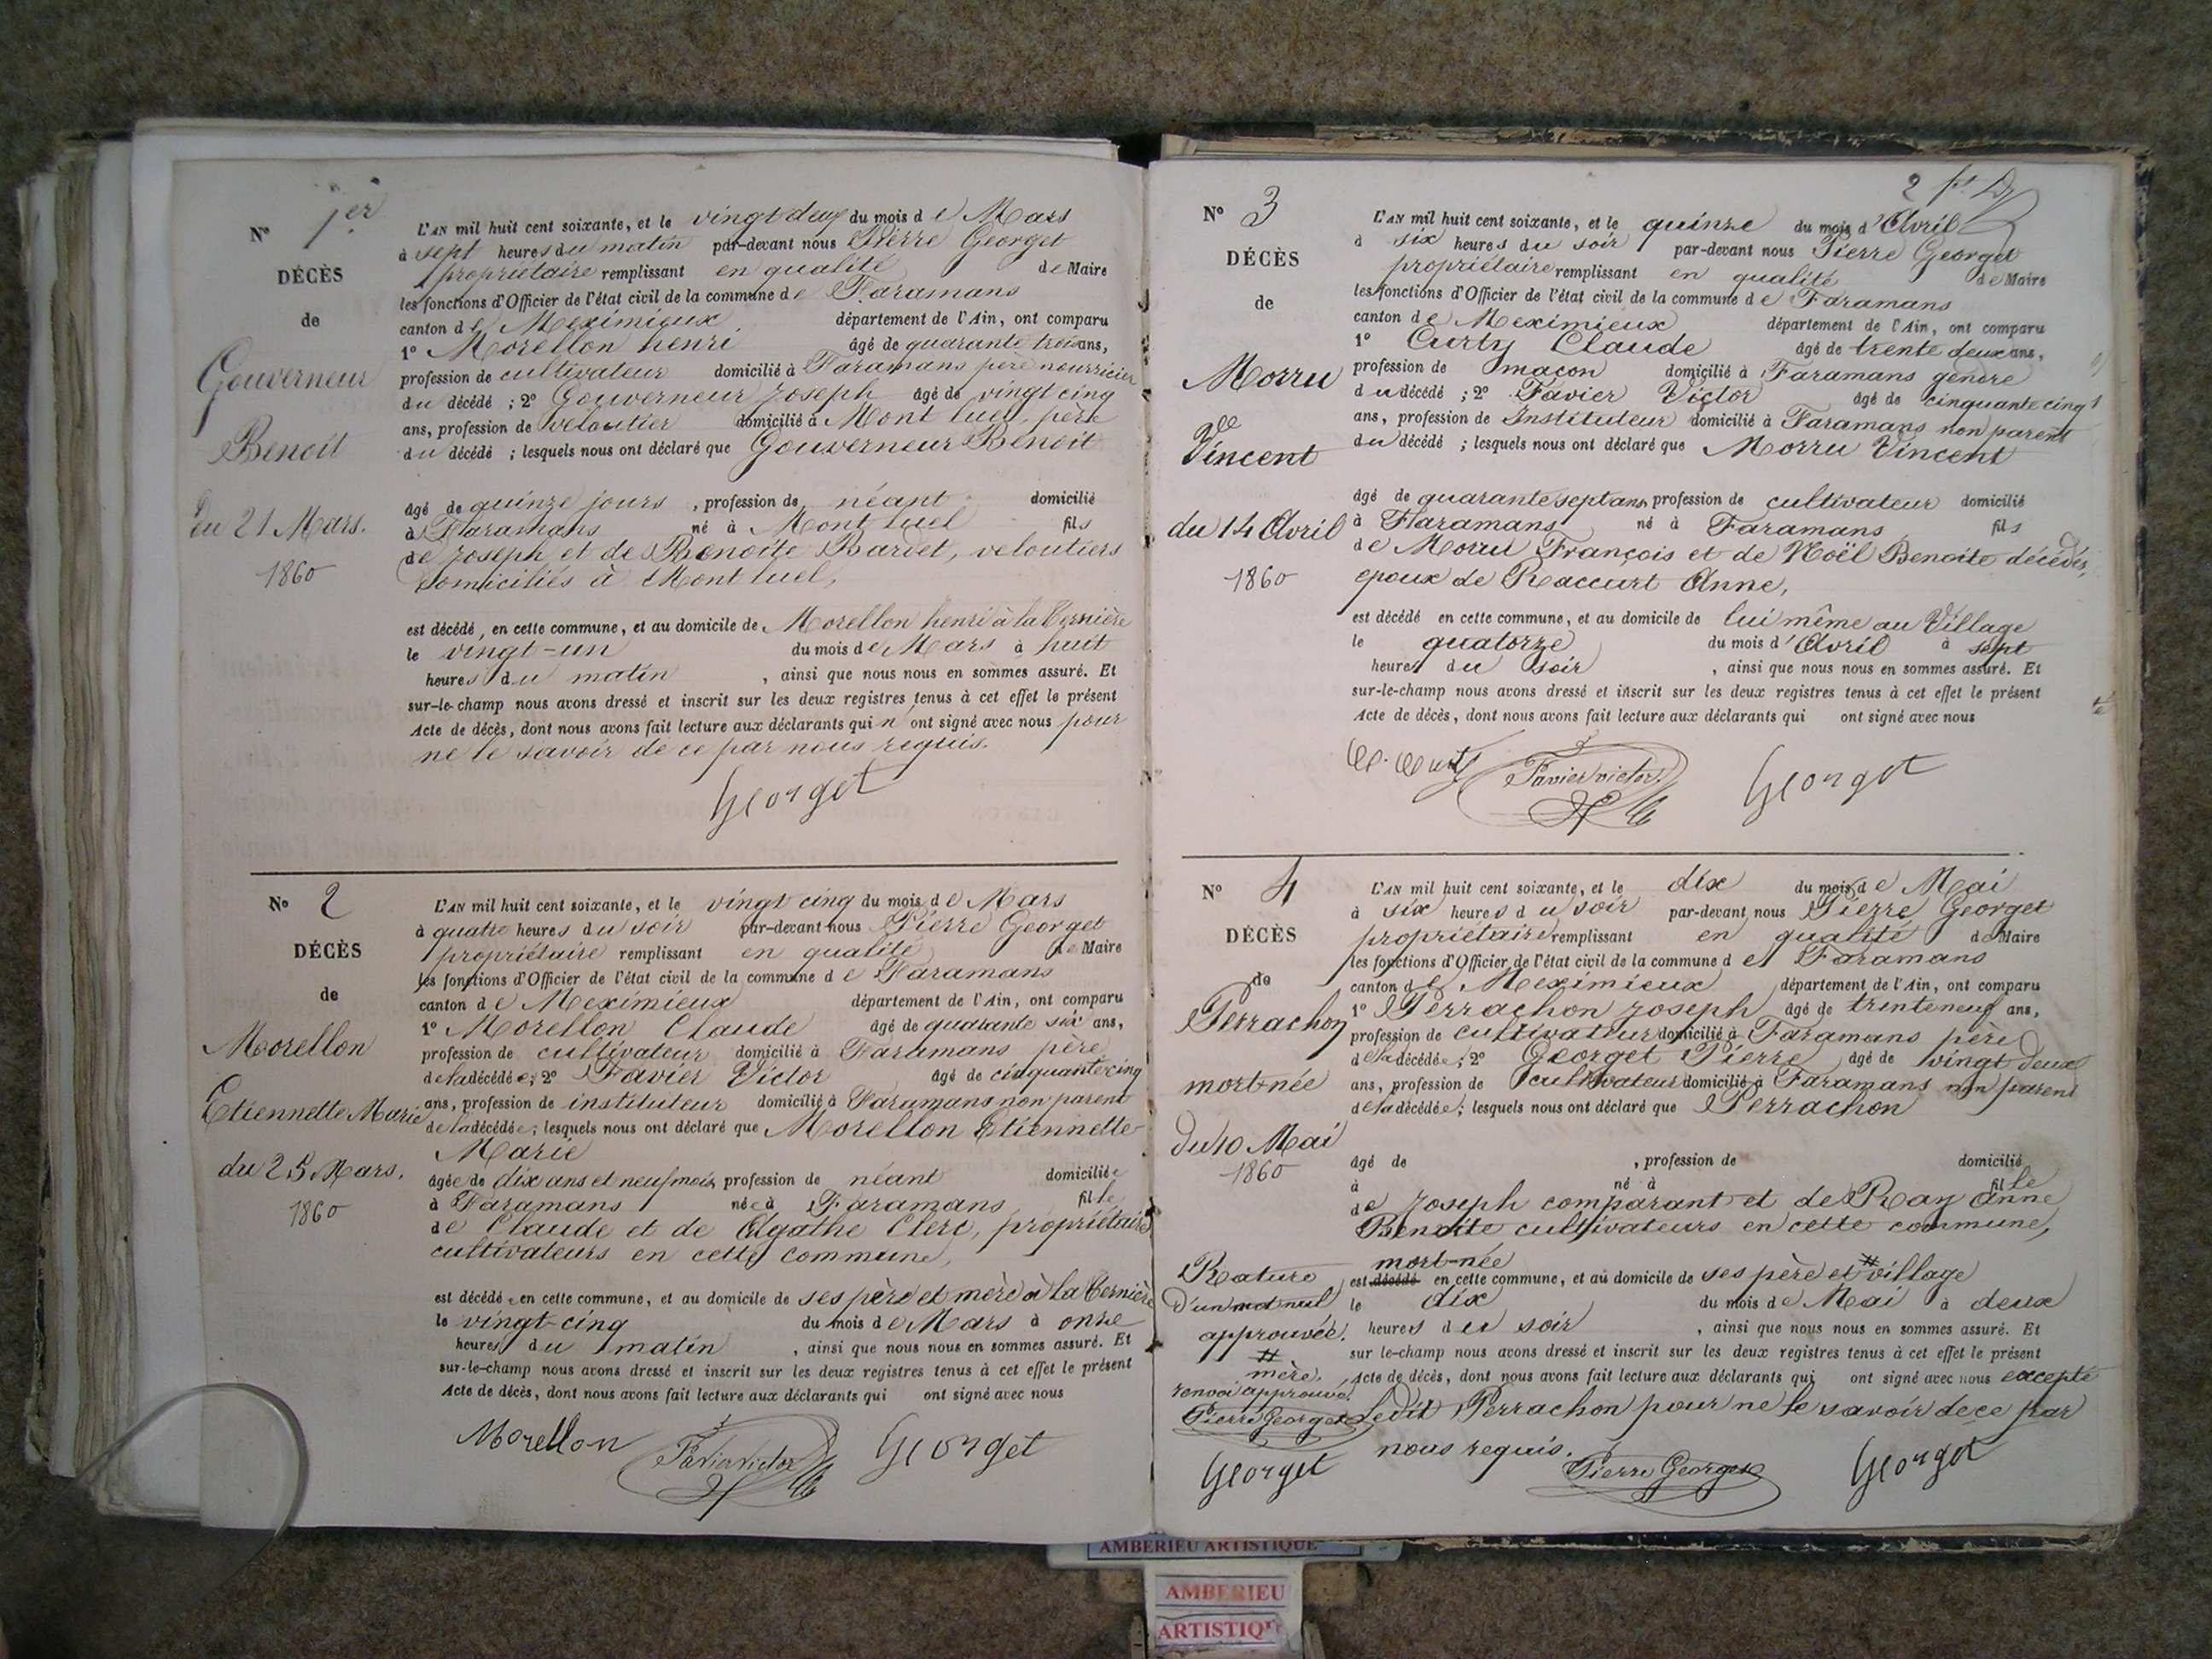 Nº 1er
DÉCÈS
de
Gouverneur
Benoit
du 21 Mars.
1860
L'AN mil huit cent soixante, et le vingt deux du mois de Mars
à sept heures du matin par-devant nous Pierre Georget
propriétaire remplissant en qualité de Maire
les fonctions d'Officier de l'état civil de la commune de Faramans
canton de Meximieux département de l'Ain, ont comparu
1º Morellon henri âgé de quarante trois ans,
profession de cultivateur domicilié à Faramans père nourricier
du décédé ; 2º Gouverneur Joseph âgé de vingt cinq
ans, profession de veloutier domicilié à Mont luel, père
du décédé ; lesquels nous ont déclaré que Gouverneur Benoit
âgé de quinze jours, profession de néant domicilié
à Faramans né à Mont luel fils
de Joseph et de Benoite Bardet, veloutiers
domiciliés à Mont luel,
est décédé, en cette commune, et au domicile de Morellon henri à la Bernière
le vingt-un du mois de Mars à huit
heures du matin, ainsi que nous nous en sommes assuré. Et
sur-le-champ nous avons dressé et inscrit sur les deux registres tenus à cet effet le présent
Acte de décès, dont nous avons fait lecture aux déclarants qui n'ont signé avec nous pour
ne le savoir de ce par nous requis.
Georget
Nº 2
DÉCÈS
de
Morellon
Etiennette Marie
du 25 Mars.
1860
L'AN mil huit cent soixante, et le vingt cinq du mois de Mars
à quatre heures du soir par-devant nous Pierre Georget
propriétaire remplissant en qualité de Maire
les fonctions d'Officier de l'état civil de la commune de Faramans
canton de Meximieux département de l'Ain, ont comparu
1º Morellon Claude âgé de quarante six ans,
profession de cultivateur domicilié à Faramans père
de la décédée; 2º Favier Victor âgé de cinquante cinq
ans, profession de instituteur domicilié à Faramans non parent
de la décédée; lesquels nous ont déclaré que Morellon Etiennette
Marie
âgée de dix ans et neuf mois, profession de néant domiciliée
à Faramans née à Faramans fille
de Claude et de Agathe Clerc, propriétaires
cultivateurs en cette commune,
est décédée en cette commune, et au domicile de ses père et mère à la Bernière
le vingt-cinq du mois de Mars à onze
heures du matin, ainsi que nous nous en sommes assuré. Et
sur-le-champ nous avons dressé et inscrit sur les deux registres tenus à cet effet le présent
Acte de décès, dont nous avons fait lecture aux déclarants qui ont signé avec nous
Morellon Favier victor Georget
2
Nº 3
DÉCÈS
de
Morru
Vincent
du 14 Avril
1860
L'AN mil huit cent soixante, et le quinze du mois d'Avril
à six heures du soir par-devant nous Pierre Georget
propriétaire remplissant en qualité de Maire
les fonctions d'Officier de l'état civil de la commune de Faramans
canton de Meximieux département de l'Ain, ont comparu
1º Curty Claude âgé de trente deux ans,
profession de maçon domicilié à Faramans gendre
du décédé ; 2º Favier Victor âgé de cinquante cinq
ans, profession de Instituteur domicilié à Faramans non parent
du décédé ; lesquels nous ont déclaré que Morru Vincent
âgé de quarante sept ans, profession de cultivateur domicilié
à Faramans né à Faramans fils
de Morru François et de Noël Benoite décédés,
epoux de Raccurt Anne,
est décédé en cette commune, et au domicile de lui même au Village
le quatorze du mois d'Avril à sept
heures du soir, ainsi que nous nous en sommes assuré. Et
sur-le-champ nous avons dressé et inscrit sur les deux registres tenus à cet effet le présent
Acte de décès, dont nous avons fait lecture aux déclarants qui ont signé avec nous
Favier victor Georget
Nº 4
DÉCÈS
de
Perrachon
mort-née
du 10 Mai
1860
L'AN mil huit cent soixante, et le dix du mois de Mai
à six heures du soir par-devant nous Pierre Georget
propriétaire remplissant en qualité de Maire
les fonctions d'Officier de l'état civil de la commune de Faramans
canton de Meximieux département de l'Ain, ont comparu
1º Perrachon Joseph âgé de trente neuf ans,
profession de cultivateur domicilié à Faramans père
de la décédée; 2º Georget Pierre âgé de vingt deux
ans, profession de cultivateur domicilié à Faramans non parent
de la décédée; lesquels nous ont déclaré que Perrachon
âgé de , profession de domicilié
à né à fille
de Joseph comparant et de Ray Anne
Benoite cultivateurs en cette commune,
mort-née
est décédé en cette commune, et au domicile de ses père et # village
le dix du mois de Mai à deux
heures du soir, ainsi que nous nous en sommes assuré. Et
sur le-champ nous avons dressé et inscrit sur les deux registres tenus à cet effet le présent
Acte de décès, dont nous avons fait lecture aux déclarants qui ont signé avec nous excepté
ledit Perrachon pour ne le savoir de ce par
nous requis.
Pierre Georget Georget
Rature
d'un mot nul
approuvée.
# mère,
renvoi approuvé.
Pierre Georget
Georget
AMBERIEU ARTISTIQUE
AMBERIEU
ARTISTIQUE